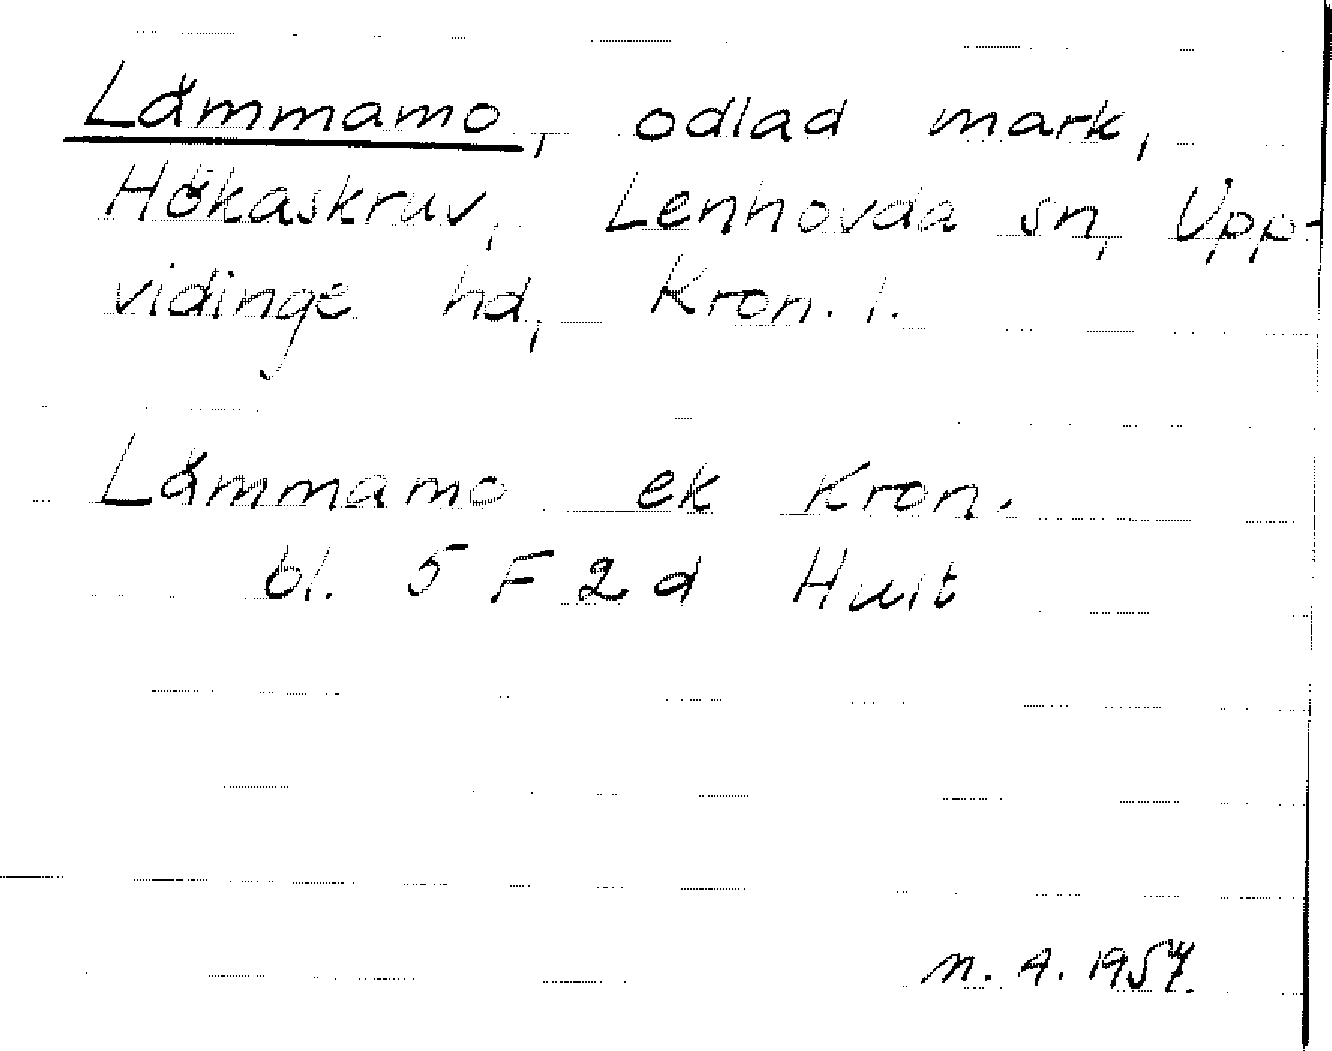 Lämmamo, odlad mark,
Hökaskruv, Lenhovda sn, Upp-
vidinge hd, Kron. l.
Lämmamo ek Kron.
bl. 5 F 2 d Hult
n. A. 1957.